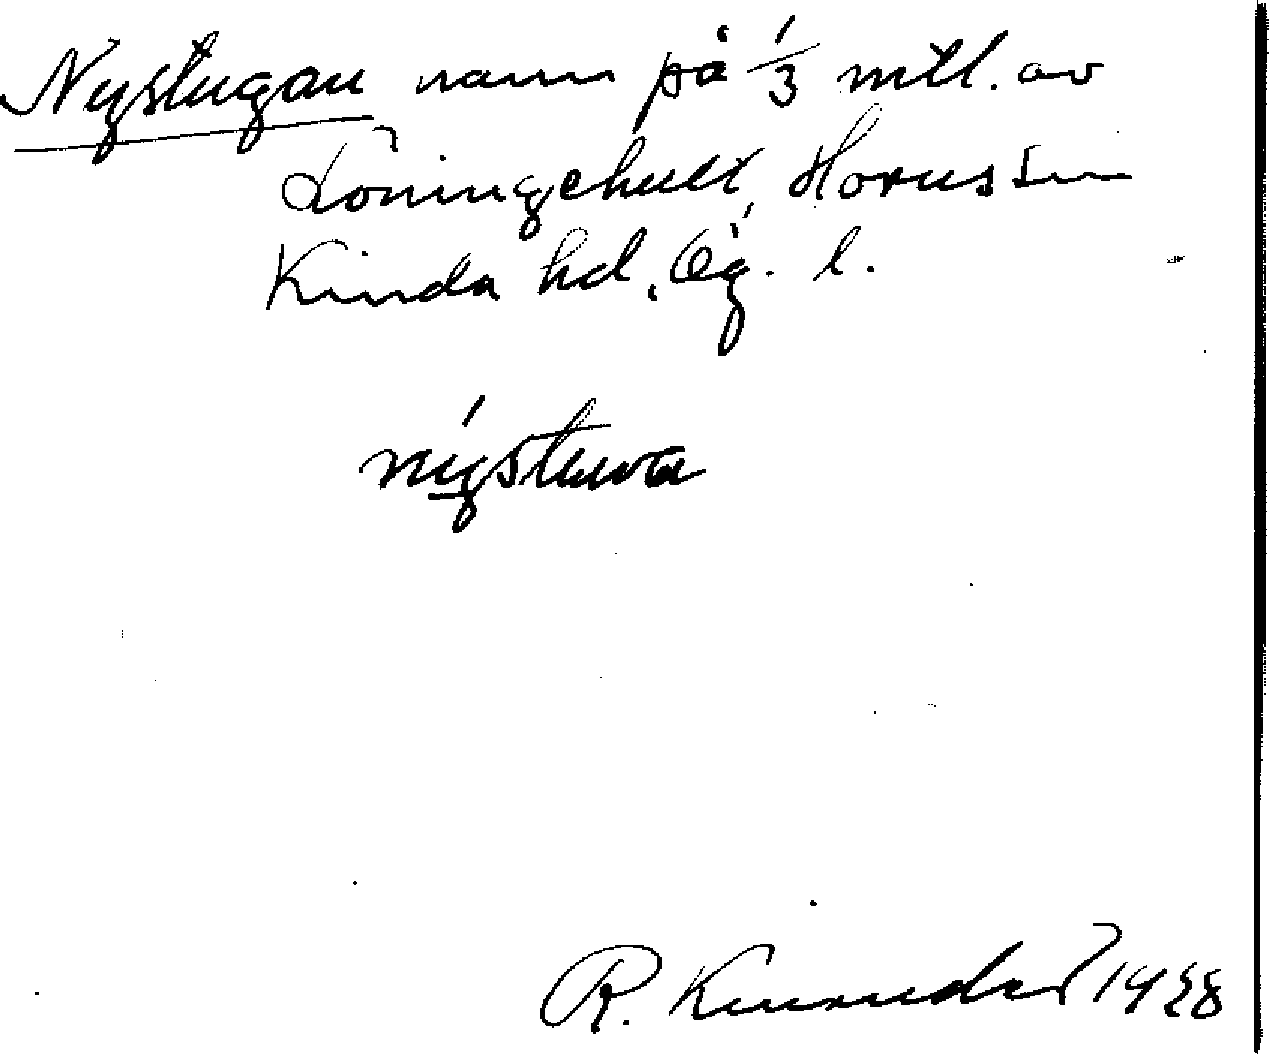 Nystugan namn på 1/3 mtl. av
Töningehult, Horns sn
Kinda hd, Ög. l.
nýstuva
R. 1928